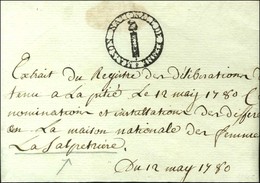 MAISON NATIONALE DE FEMME
Extrait du Registre des délibérations
tenu a La pitié Le 12 may 1780
nominations et installations des differ
en La maison nationale des femmes
La Salpetriere
Du 12 may 1780